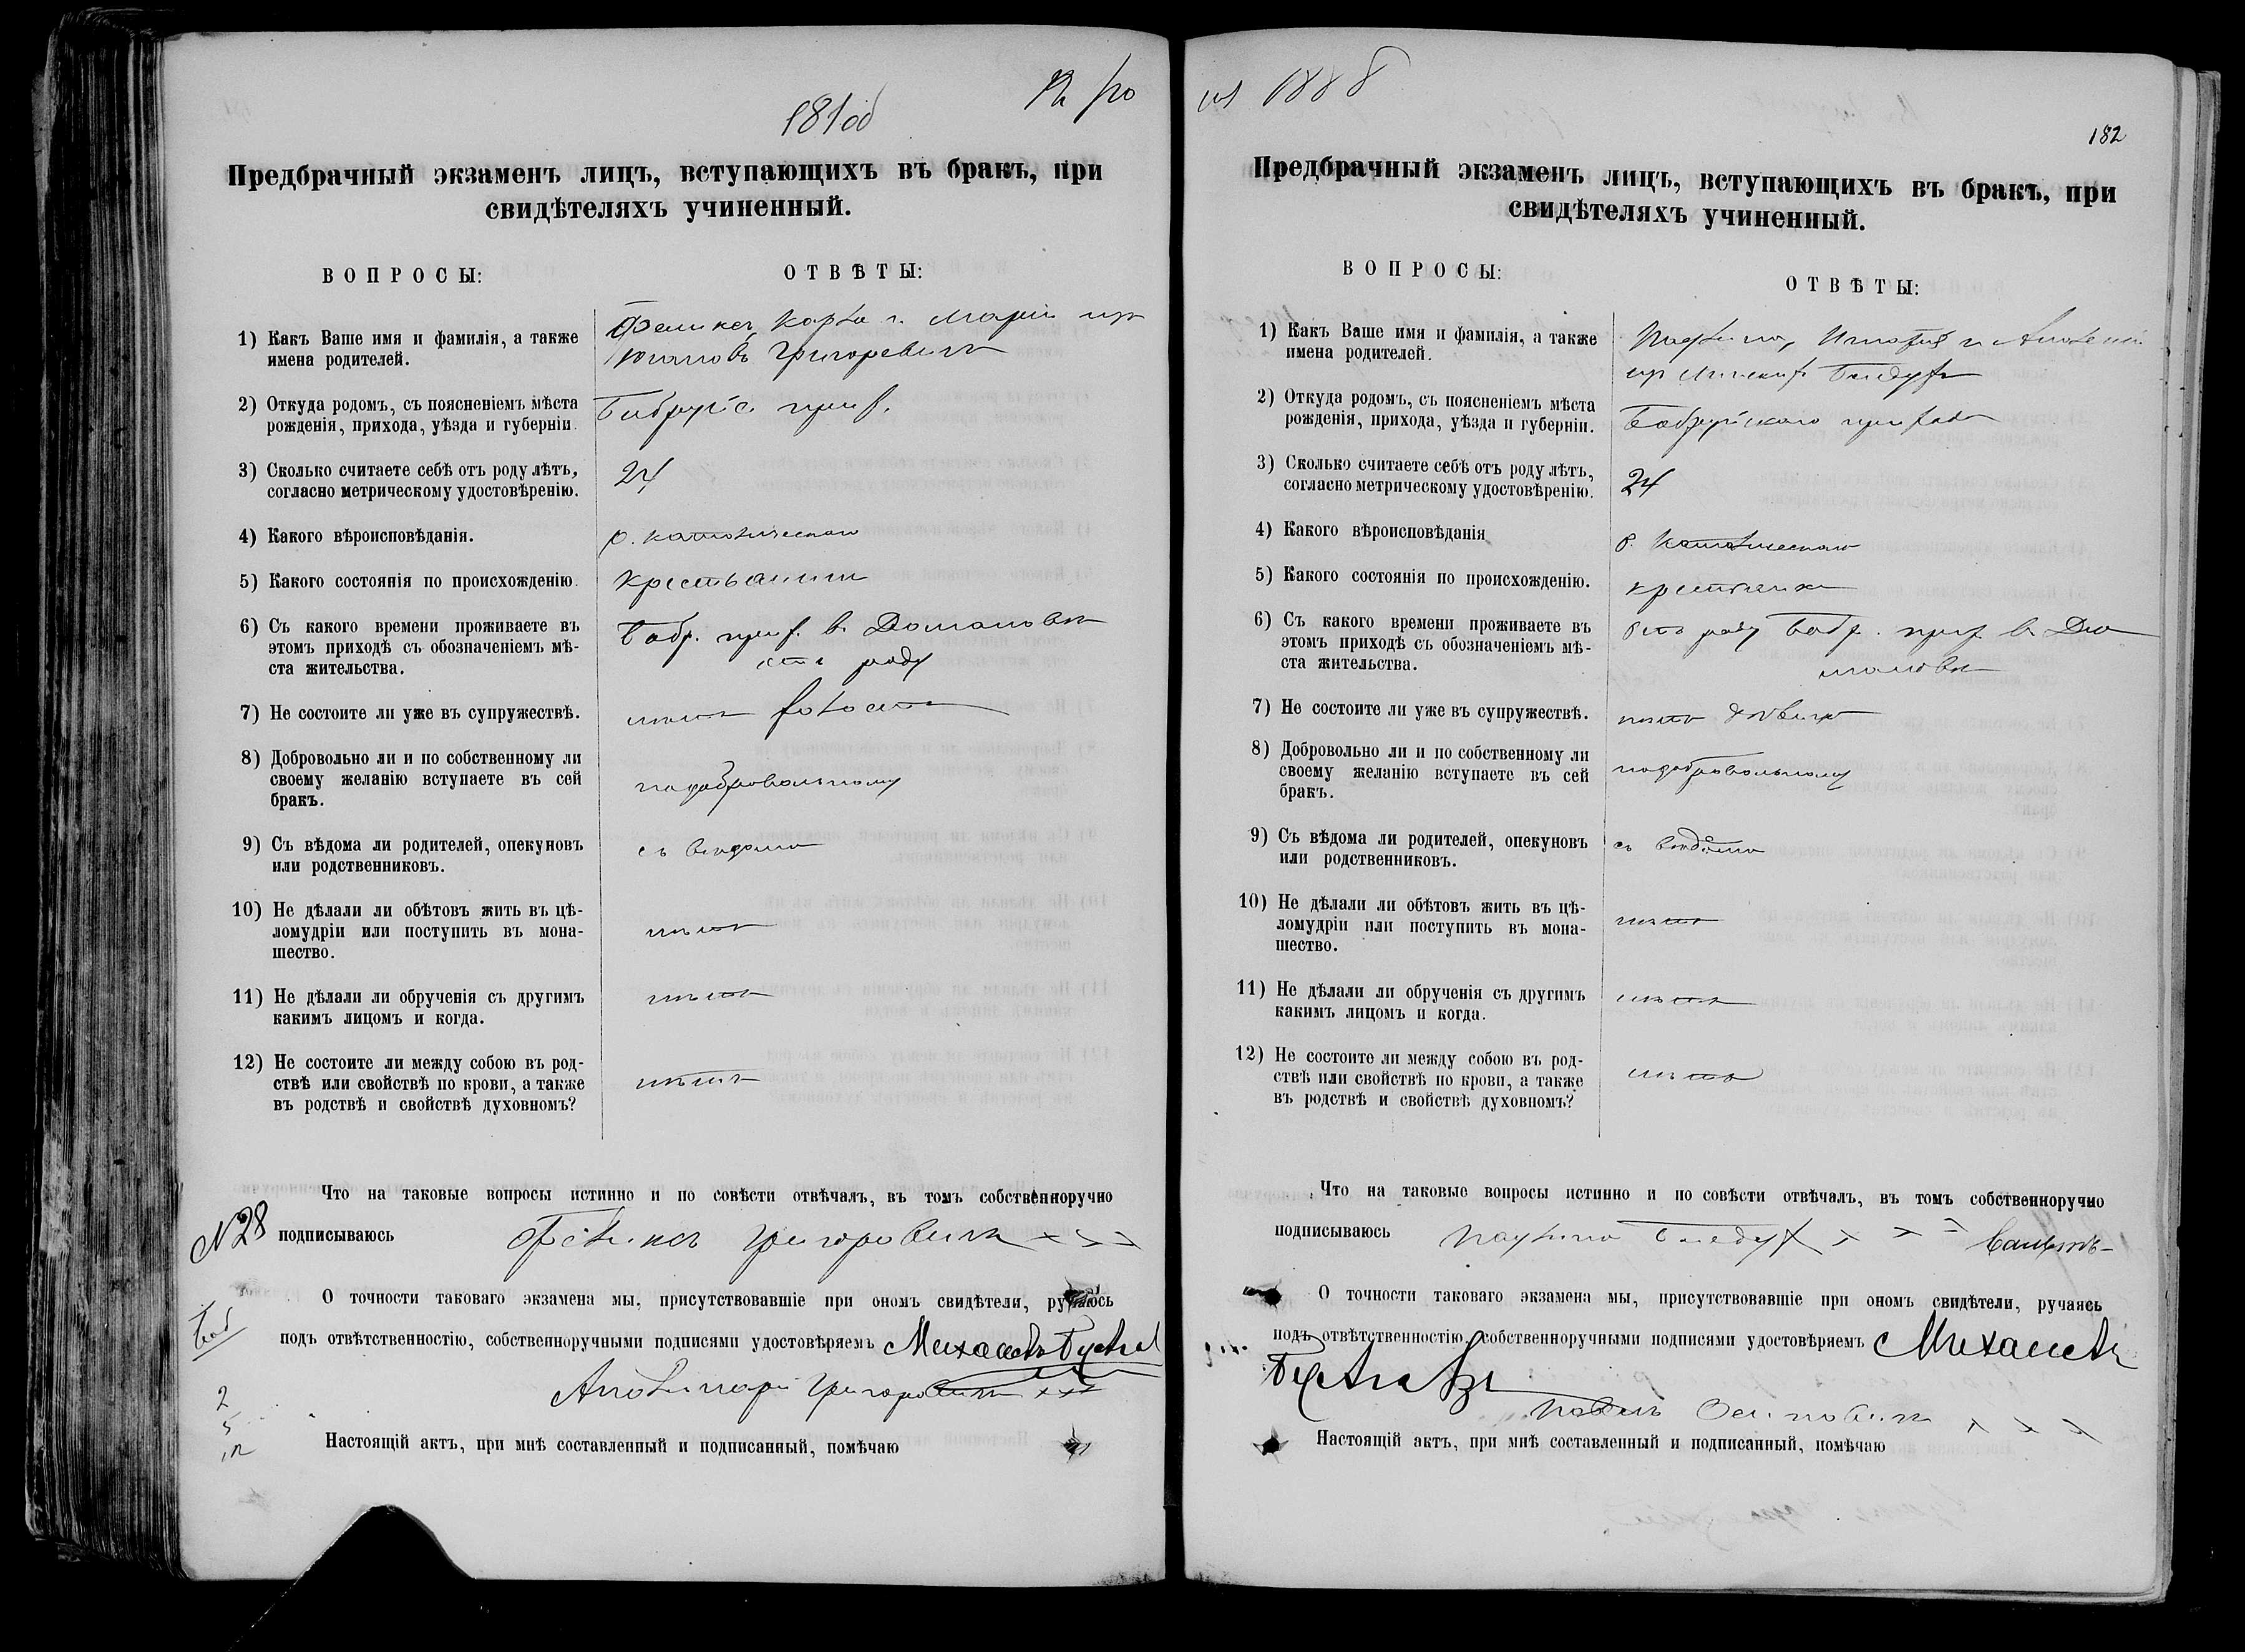 181об
Предбрачный экзаменъ лицъ, вступающихъ въ бракъ, при
свидѣтеляхъ учиненный.
ВОПРОСЫ:
ОТВѢТЫ:
1) Какъ Ваше имя и фамилія, а также
имена родителей.
Феликсъ, Карла и Маріи
Григоревичъ
2) Откуда родомъ, съ поясненіемъ мѣста
рожденія, прихода, уѣзда и губерніи.
3) Сколько считаете себѣ отъ роду лѣтъ,
согласно метрическому удостовѣренію.
24
4) Какого вѣроисповѣданія.
р. католическаго
5) Какого состоянія по происхожденію.
крестьянинъ
6) Съ какого времени проживаете въ
этомъ приходѣ съ обозначеніемъ мѣ-
ста жительства.
Бобр. прих. в.
отъ роду
7) Не состоите ли уже въ супружествѣ.
8) Добровольно ли и по собственному ли
своему желанію вступаете въ сей
бракъ.
подобровольному
9) Съ вѣдома ли родителей, опекуновъ
или родственниковъ.
съ вѣдома
10) Не дѣлали ли обѣтовъ жить въ цѣ-
ломудріи или поступить въ мона-
шество.
нѣтъ
11) Не дѣлали ли обрученія съ другимъ
какимъ лицомъ и когда.
нѣтъ
12) Не состоите ли между собою въ род-
ствѣ или свойствѣ по крови, а также
въ родствѣ и свойствѣ духовномъ?
нѣтъ
Что на таковые вопросы истинно и по совѣсти отвѣчалъ, въ томъ собственноручно
N28 подписываюсь Феликсъ Григоровичъ ×××
О точности таковаго экзамена мы, присутствовавшіе при ономъ свидѣтели, ручаюсь
подъ отвѣтственностію, собственноручными подписями удостовѣряемъ Михаилъ
Григоровичъ ×××
Настоящій актъ, при мнѣ составленный и подписанный, помѣчаю
1888
182
Предбрачный экзаменъ лицъ, вступающихъ въ бракъ, при
свидѣтеляхъ учиненный.
ВОПРОСЫ:
ОТВѢТЫ:
1) Какъ Ваше имя и фамилія, а также
имена родителей.
2) Откуда родомъ, съ поясненіемъ мѣста
рожденія, прихода, уѣзда и губерніи.
Бобруйскаго прихода
3) Сколько считаете себѣ отъ роду лѣтъ,
согласно метрическому удостовѣренію.
24
4) Какого вѣроисповѣданія
р. католическаго
5) Какого состоянія по происхожденію.
крестьянка
6) Съ какого времени проживаете въ
этомъ приходѣ съ обозначеніемъ мѣ-
ста жительства.
отъ роду Бобр. прих. в.
7) Не состоите ли уже въ супружествѣ.
8) Добровольно ли и по собственному ли
своему желанію вступаете въ сей
бракъ.
подобровольному
9) Съ вѣдома ли родителей, опекуновъ
или родственниковъ.
съ вѣдома
10) Не дѣлали ли обѣтовъ жить въ цѣ-
ломудріи или поступить въ мона-
шество.
нѣтъ
11) Не дѣлали ли обрученія съ другимъ
какимъ лицомъ и когда.
нѣтъ
12) Не состоите ли между собою въ род-
ствѣ или свойствѣ по крови, а также
въ родствѣ и свойствѣ духовномъ?
нѣтъ
Что на таковые вопросы истинно и по совѣсти отвѣчалъ, въ томъ собственноручно
подписываюсь × × ×
О точности таковаго экзамена мы, присутствовавшіе при ономъ свидѣтели, ручаясь
подъ отвѣтственностію, собственноручными подписями удостовѣряемъ Михаилъ
Осиповичъ × × ×
Настоящій актъ, при мнѣ составленный и подписанный, помѣчаю